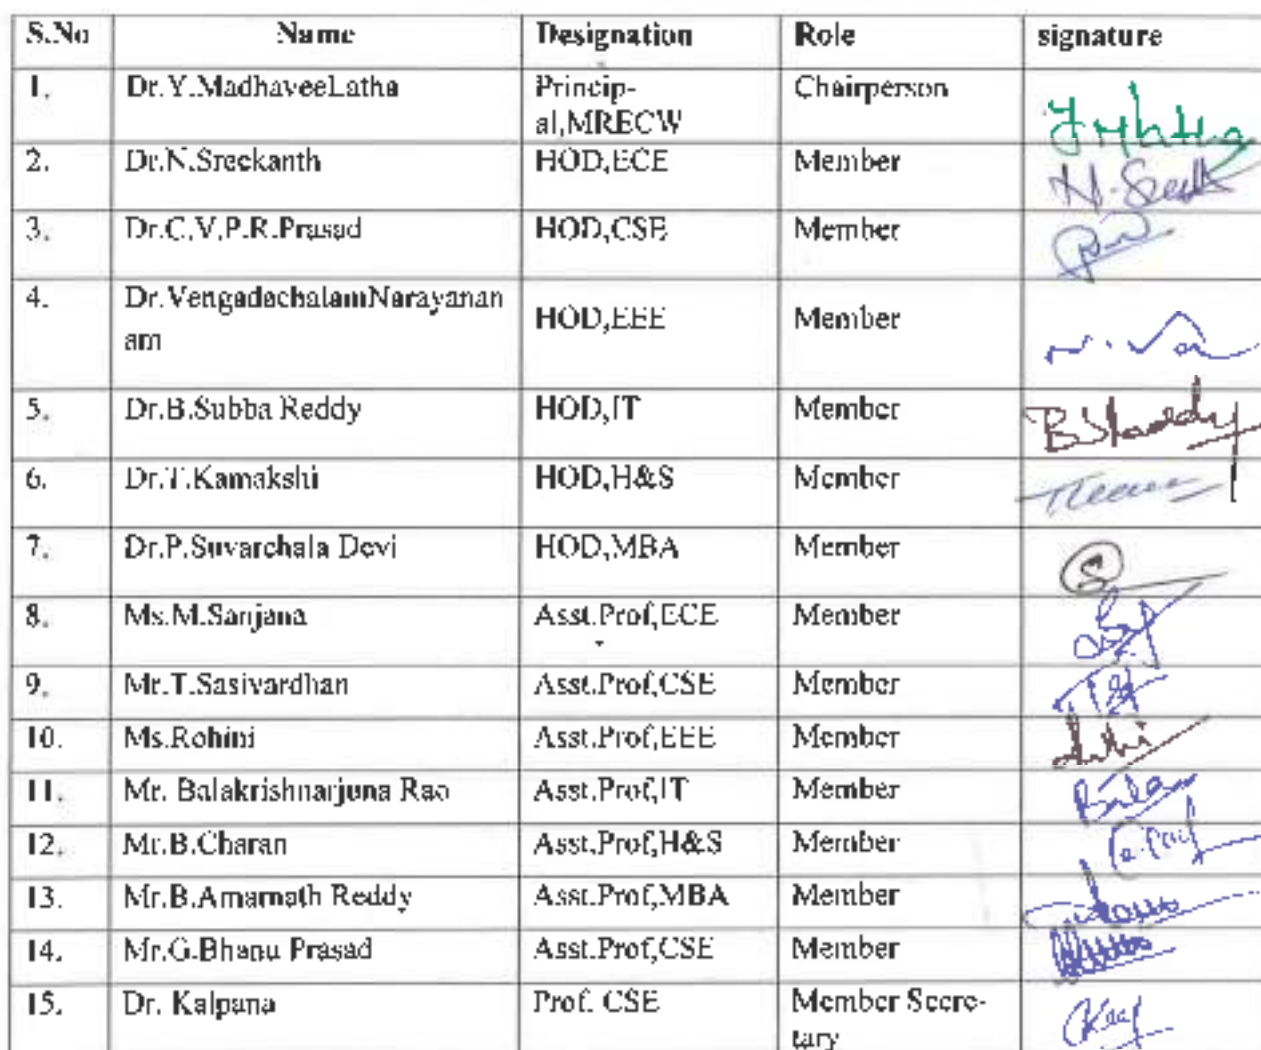 S.No Name Designation Role signature
1. Dr.Y.MadhaveeLatha Princip- Chairperson
al,MRECW
2. Dr.N.Sreekanth HOD,ECE Member N.Sreek
3. Dr.C.V.P.R.Prasad HOD,CSE Member
4. Dr.VengadachalamNarayanan HOD,EEE Member
am
5. Dr.B.Subba Reddy HOD,IT Member BSReddy
6. Dr.T.Kamakshi HOD,H&S Member
7. Dr.P.Suvarchala Devi HOD,MBA Member S
8. Ms.M.Sanjana Asst.Prof,ECE Member
9. Mr.T.Sasivardhan Asst.Prof,CSE Member
10. Ms.Rohini Asst.Prof,EEE Member
11. Mr. Balakrishnarjuna Rao Asst.Prof,IT Member
12. Mr.B.Charan Asst.Prof,H&S Member
13. Mr.B.Amarnath Reddy Asst.Prof,MBA Member
14. Mr.G.Bhanu Prasad Asst.Prof,CSE Member
15. Dr. Kalpana Prof. CSE Member Secre-
tary